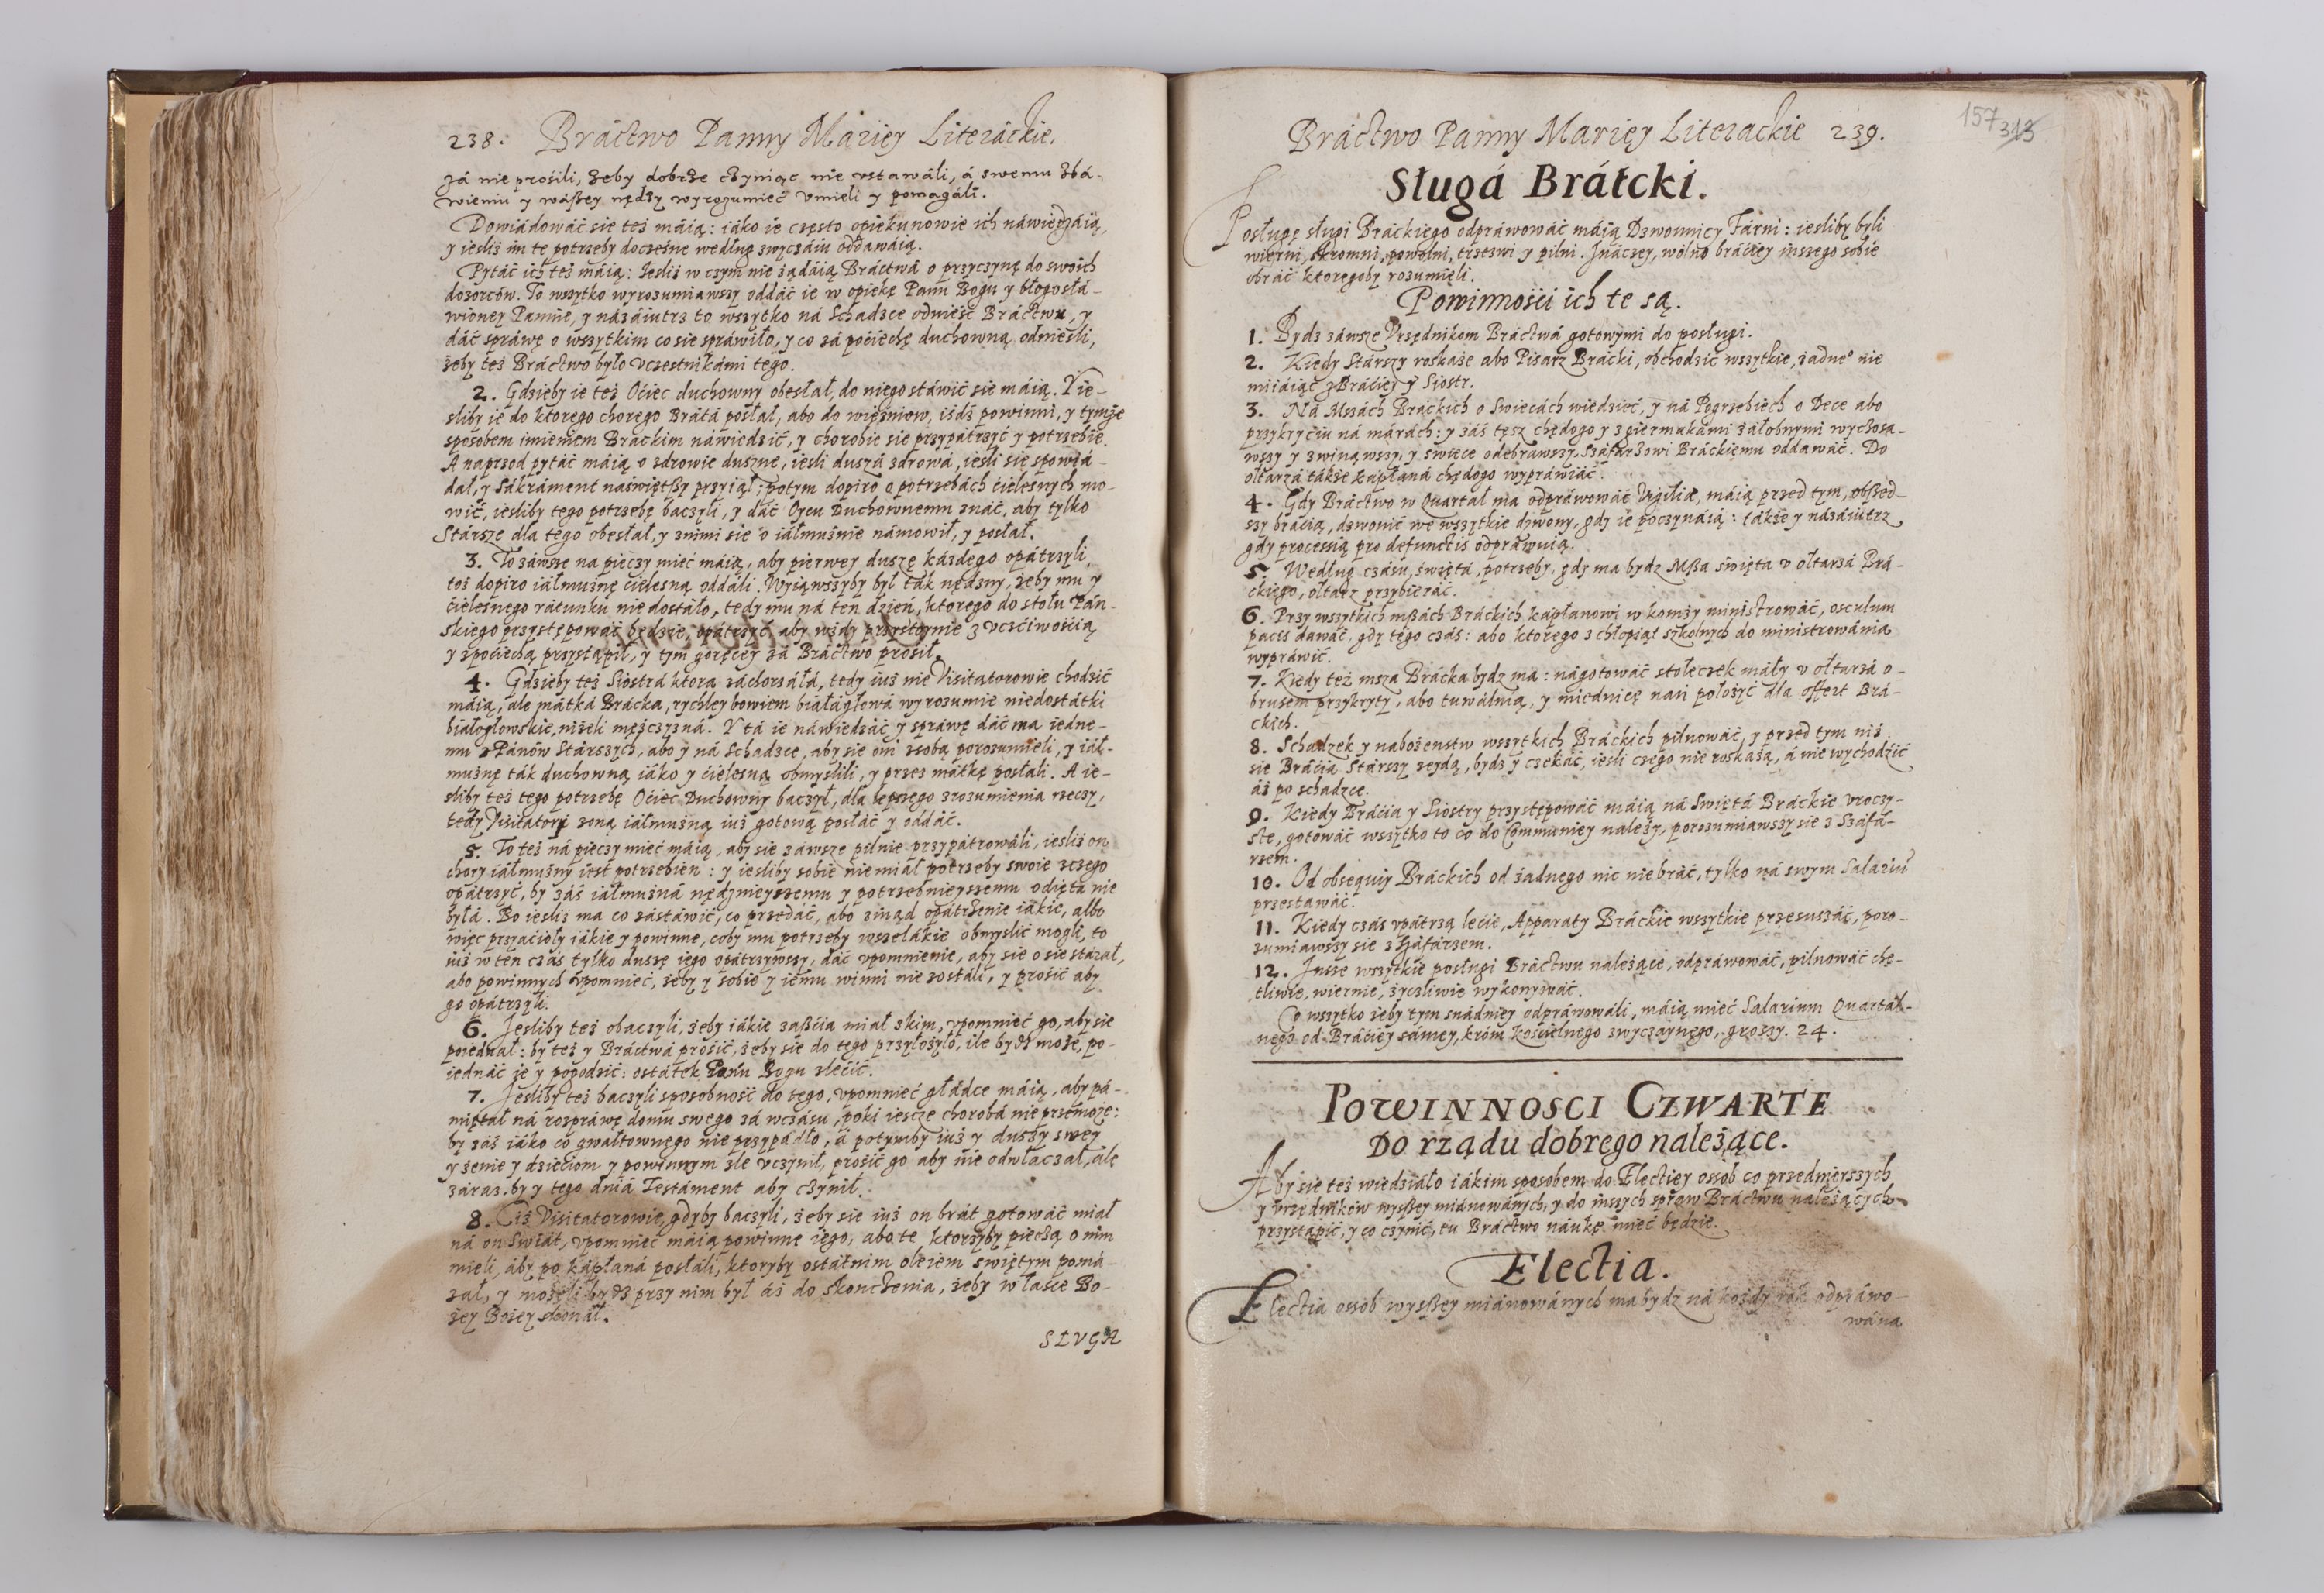 238. Bráctwo Panny Máriey Literáckie.
zá nie prosili, żeby dobrze czyniąc nie vstawáli, á swemu zbá-
wieniu y wászey nędzy wyrozumieć vmieli y pomagáli.
Dowiádowáć sie też máią: iáko ie często opiekunowie ich náwiedzáią,
y iesliż im te potrzeby doczesne według zwyczáiu oddawáią.
Pytáć ich też máią: Iesliż w czym nie żądáią Bráctwá o przyczynę do swoich
dozorców. To wszytko wyrozumiawszy oddáć ie w opiekę Panu Bogu y błogosłá-
wioney Pannie, y názáiutrz to wszytko ná Schadzce odnieść Bráctwu, y
dáć spráwę o wszytkim co sie spráwiło, y co zá pociechę duchowną odnieśli,
żeby też Bráctwo było vczestnikámi tego.
2. Gdzieby ie też Ociec duchowny obesłał, do niego stáwić sie máią. Y ie-
sliby ie do ktorego chorego Brátá posłał, abo do więźniow, iśdź powinni, y tymże
sposobem imieniem Bráckim náwiedzić, y chorobie sie przypátrzyć y potrzebie.
A naprzod pytáć máią o zdrowie duszne, iesli duszá zdrowá, iesli się spowiá-
dał, y Sákráment naświętszy przyiął; potym dopiro o potrzebách cielesnych mo-
wić, iesliby tego potrzebę baczyli, y dáć Oycu Duchownemu znáć, aby tylko
Stársze dla tego obesłał, y z nimi sie o iáłmużnie námowił, y posłał.
3. To záwsze na pieczy mieć máią, aby pierwey duszę káżdego opátrzyli,
toż dopiro iáłmużnę cielesną oddáli. Wyiąwszyby był ták nędzny, żeby mu y
cielesnego rátunku nie dostáło, tedy mu ná ten dzien, ktorego do stołu Páń-
skiego przystępowáć będzie, opátrzyć, aby wżdy przystoynie z vczciwością
y z pociechą przystąpił, y tym goręcey zá Bráctwo prosił.
4. Gdzieby też Siostrá ktora záchorzáłá, tedy iuż nie Visitatorowie chodzić
máią, ale mátká Brácka, rychley bowiem białagłowá wyrozumie niedostátki
białogłowskie, niżeli męsczyzná. Y tá ie náwiedzáć y spráwę dáć ma iedne-
mu z Pánów Stárszych, abo y ná Schadzce, aby sie oni z sobą porozumieli, y iáł-
mużnę ták duchowną iáko y cielesną obmyslili, y przez mátkę posłali. A ie-
sliby też tego potrzebę Ociec Duchowny baczył, dla lepszego zrozumienia rzeczy,
tedy Visitatory z oną iáłmużną iuż gotową posłáć y oddáć.
5. To też ná pieczy mieć máią, aby sie záwsze pilnie przypátrowáli, iesliż on
chory iáłmużny iest potrzebien: y iesliby sobie nie miał potrzeby swoie z czego
opátrzyć, by záś iáłmużná nędznieyszemu y potrzebnieyszemu odięta nie
byłá. Bo iesliż ma co zástáwić, co przedáć, abo z inąd opátrzenie iákie, albo
więc przyiacioły iákie y powinne, coby mu potrzeby wszelákie obmyślić mogli, to
iuż w ten czás tylko duszę iego opátrzywszy, dáć vpomnienie, aby sie o sie stárał,
abo powinnych vpomnieć, żeby y sobie y iemu winni nie zostáli, y prosić aby
go opátrzyli.
6. Iesliby też obaczyli, żeby iákie zaszcia miał z kim, vpomnieć go, aby sie
poiednał: by też y Bráctwá prosić, żeby sie do tego przyłożyło, ile bydź może, po-
iednáć ie y pogodzić: ostátek Panu Bogu zlecić.
7. Iesliby też baczyli sposobność do tego, vpomnieć gładce máią, aby pá-
miętał ná rozpráwę domu swego zá wczásu, poki iescze chorobá nie przemoże:
by záś iáko co gwałtownego nie przypádło, á potymby iuż y duszy swey
y żenie y dzieciom y powinnym źle vczynił, prosić go aby nie odwłaczał, ále
záraz by y tego dniá Testáment aby czynił.
8. Ciż Visitatorowie, gdyby baczyli, żeby sie iuż on brát gotowáć miał
ná on świát, vpomnieć máią powinne iego, abo te ktorzyby pieczą o nim
mieli, áby po kápłaná posłáli, ktoryby ostátnim oleiem świętym pomá-
zał, y możeli bydź przy nim był áż do skończenia, żeby w łásce Bo-
żey Bożey skonał.
SŁVGA
157 313
Bráctwo Panny Mariey Literackie 239.
Sługá Brátcki.
Posługę sługi Bráckiego odpráwowáć máią Dzwonnicy Fárni: iesliby byli
wierni, skromni, powolni, trzeźwi y pilni. Ináczey, wolno bráciey inszego sobie
obráć ktoregoby rozumieli.
Powinności ich te są.
1. Bydź záwsze Vrzędnikom Bráctwá gotowymi do posługi.
2. Kiedy Stárszy roskaże abo Pisarz Brácki, obchodzić wszytkie, żadnego nie
miiáiąc z Bráciey y Siostr.
3. Ná Mszách Bráckich o świecách wiedzieć, y ná Pogrzebiech o Dece abo
przykryciu ná márách: y záś tęsz chędogo y z giermakámi żáłobnymi wychosa-
wszy y zwinąwszy, y świece odebrawszy, Száfarzowi Bráckiemu oddawáć. Do
ołtarzá tákże kapłaná chędogo wypráwiáć.
4. Gdy Bráctwo w Quartał ma odpráwowáć Vigilie, máią przed tym, obszed-
szy brácią, dzwonić we wszytkie dzwony, gdy ie poczynáią: tákże y názáiutrz
gdy processią pro defunctis odpráwuią.
5. Według czásu, świętá, potrzeby, gdy ma bydz Msza święta v ołtarzá Brá-
ckiego, ołtarz przybieráć.
6. Przy wszytkich mszách Bráckich kapłanowi w komży ministrowáć, osculum
pacis dawáć, gdy tego czás: abo ktorego z chłopiąt szkolnych do ministrowánia
wypráwić.
7. Kiedy też msza Brácka bydz ma: nágotowáć stołeczek máły v ołtarzá o-
brusem przykryty, abo tuwálnią, y miednicę nań położyć dla offert Brá-
ckich.
8. Schadzek y nabożeństw wszytkich Bráckich pilnowáć, y przed tym niż
sie Brácia Stárszy zeydą, bydź y czekáć, iesli czego nie roskażą, á nie wychodzić
áż po schadzce.
9. Kiedy Brácia y Siostry przystępowáć máią ná świętá Bráckie vroczy-
ste, gotowáć wszytko to co do Communiey należy, porozumiawszy sie z Száfa-
rzem.
10. Od obsequiy Bráckich od żadnego nic nie bráć, tylko ná swym Salariu
przestawáć.
11. Kiedy czás vpátrzą lecie, Apparaty Bráckie wszytkie przesuszáć, poro-
zumiawszy sie z Száfárzem.
12. Insze wszytkie posługi Bráctwu należące, odpráwowáć, pilnowáć chę-
tliwie, wiernie, życzliwie wykonywáć.
Co wszytko żeby tym snádniey odpráwowáli, máią mieć Salarium Quartał-
nego od Bráciey sámey, króm kościelnego zwyczaynego, groszy. 24.
POWINNOSCI CZWARTE
Do rządu dobrego należące.
Aby sie też wiedziáło iákim sposobem do Electiey ossob co przednieyszych
y vrzędników wyszszey miánowánych, y do inszych spraw Bráctwu należących
przystąpić, y co czynić, tu Bráctwo náukę mieć będzie.
Electia.
Electia ossób wyszszey miánowánych ma bydz ná kożdy rok odpráwo-
wána